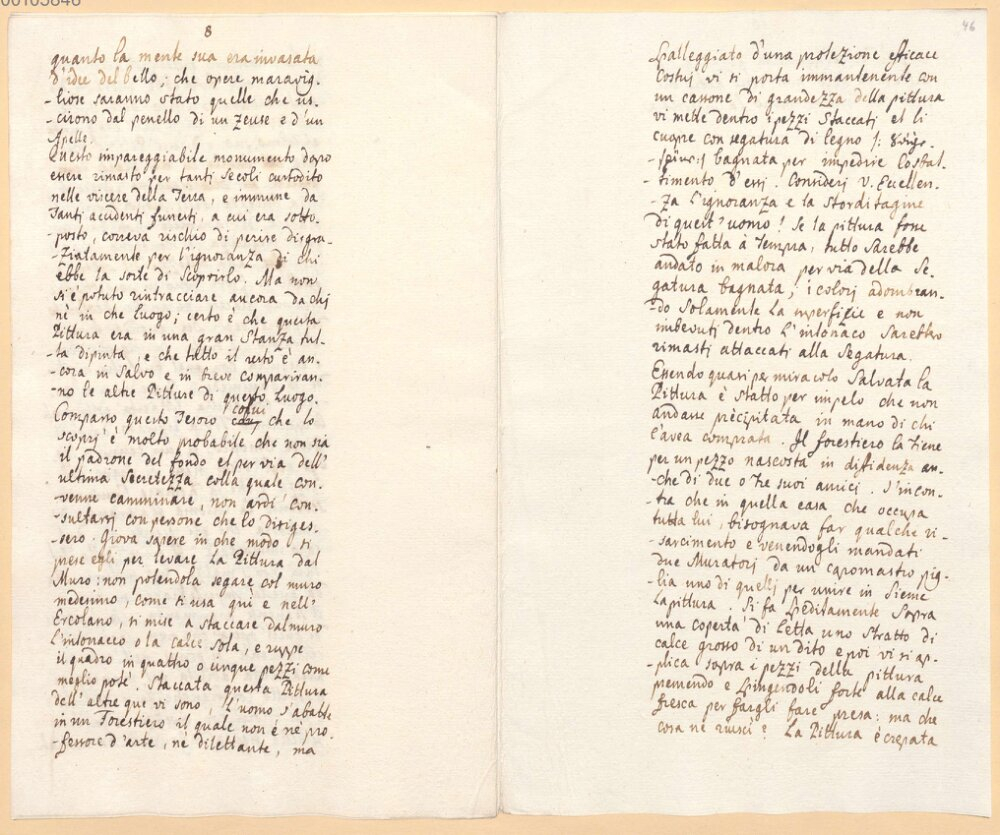 00105846
8
quanto la mente sua era invasata
d'idee del bello; che opere maravig.
-liose saranno stato quelle che us.
-cirono dal penello di un Zeuse e d'un
Apelle.
Questo impareggiabile monumento dopo
essere rimasto per tanti Secoli custodito
nelle viscere della Terra, e immune da
Tanti accidenti funesti, a cui era sotto.
-posto, correva rischio di perire disgra-
-ziatamente per l'ignoranza di chi
ebbe la sorte di Scoprirlo. Ma non
si è potuto rintracciare ancora da chj
nè in che Luogo; certo è che questa
Pittura era in una gran Stanza tut-
-ta dipinta, e che tutto il resto è an.
-cora in Salvo e in breve compariran.
-no le altre Pitture di questo Luogo.
Comparso questo Tesoro colui che lo
scoprj è molto probabile che non sia
il padrone del fondo et per via dell'
ultima Secretezza colla quale con.
-venne camminare, non ardì con.
-sultarsj con persone che lo diriges.
-sero. Giova sapere in che modo si
prese egli per levare La Pittura dal
Muro: non potendola segare col muro
medesimo, come si usa quì e nell'
Ercolano, si mise a staccare dal muro
l'intonacco o la calce sola, e ruppe
il quadro in quattro o cinque pezzi come
meglio potè. Staccata questa Pittura
dell'altre que vi sono, L'uomo s'abatte
in un Forestiero il quale non è nè pro.
-fessore d'arte, nè dilettante, ma
46
spalleggiato d'una protezione efficace
Costuj vi si porta immantenente con
un cassone di grandezza della pittura
vi mette dentro i pezzi Staccati et li
cuopre con segatura di legno
bagnata per impedire Costal.
-timento d'essi. Considerj V. Eccellen.
-za L'ignoranza e la storditagine
di quest'uomo! Se la pittura fosse
stato fatta à Tempra, tutto Sarebbe
andato in malora per via della Se.
gatura bagnata; i colorj adombran.
-do Solamente La superfizie e non
imbevuti dentro L'intonaco Sarebbero
rimasti attaccati alla Segatura.
Essendo quasi per miracolo Salvata la
Pittura è Statto per impelo che non
andasse precipitata in mano di chi
l'avea comprata. Il forestiero la tiene
per un pezzo nascosta in diffidenza an.
-che di due o tre suoi amici. S'incon.
-tra che in quella casa che occupa
tutta lui, bisognava far qualche ri-
-sarcimento e venendogli mandati
due Muratorj da un capomastro pig-
-lia uno di quellj per unire in Sieme
La pittura. Si fa speditamente Sopra
una coperta di Letta uno Stratto di
calce grosso di un dito e poi vi si ap-
-plica sopra i pezzi della pittura
premendo e spingendoli forte alla calce
fresca per fargli fare presa: ma che
cosa nè riuscì? La Pittura è crepata